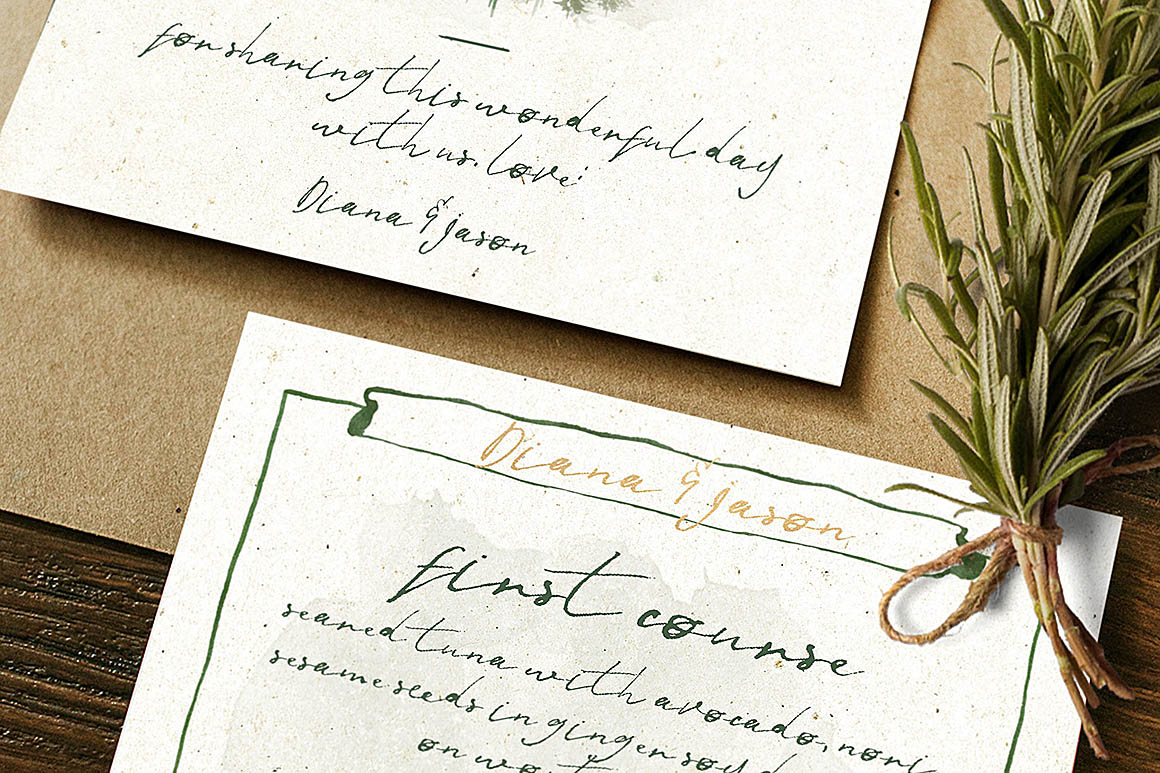 for sharing this wonderful day
with us. love
Diana & jason
Diana & jason
first course
seared tuna with avocado, nori
sesame seeds in ginger soy
on